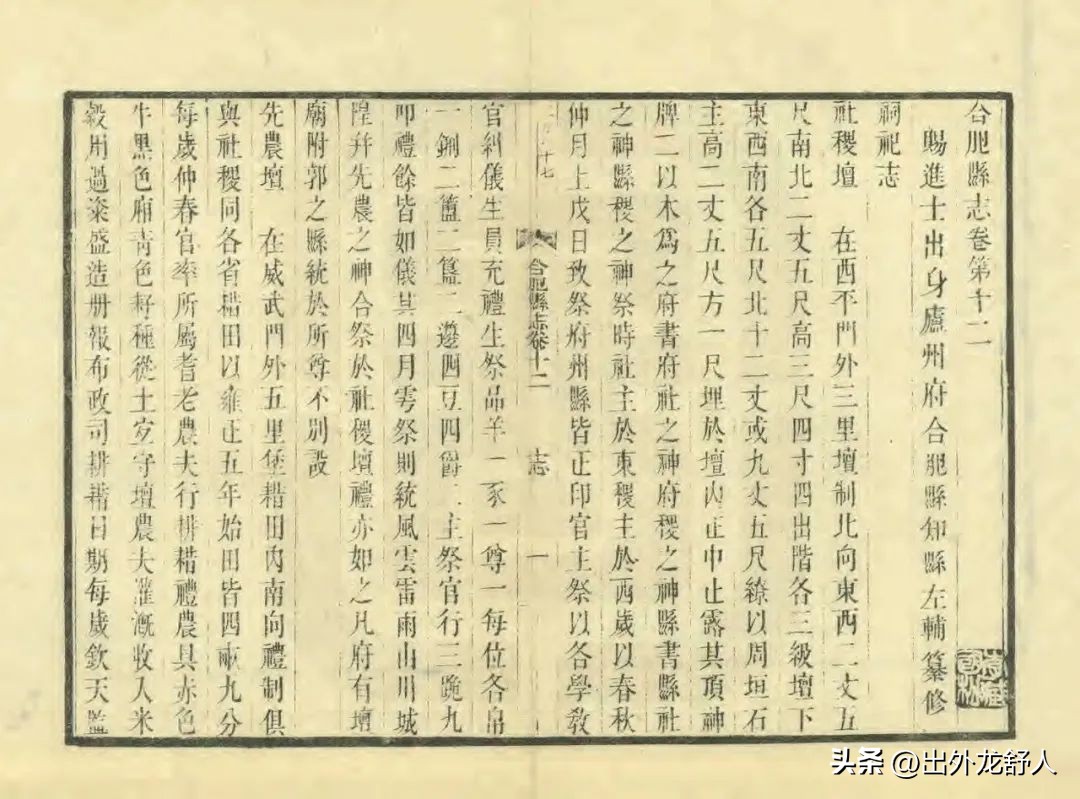 合肥縣志卷第十二
賜進士出身廬州府合肥縣知縣左輔纂修
祠祀志
社稷壇 在西平門外三里壇制北向東西二丈五
尺南北二丈五尺高三尺四寸四出階各三級壇下
東西南各五尺北十二丈或九丈五尺繚以周垣石
主高二丈五尺方一尺埋於壇內正中止露其頂神
牌二以木爲之府書府社之神府稷之神縣書縣社
之神縣稷之神祭時社主於東稷主於西歲以春秋
仲月上戊日致祭府州縣皆正印官主祭以各學敎
合肥縣志卷十二 志 一
十七
官糾儀生員充禮生祭品羊一豕一尊一每位各帛
一鉶二簠二簋二籩四豆四爵二主祭官行三跪九
叩禮餘皆如儀其四月雩祭則統風雲雷雨山川城
隍并先農之神合祭於社稷壇禮亦如之凡府有壇
廟附郭之縣統於所尊不別設
先農壇 在威武門外五里堡耤田內南向禮制俱
與社稷同各省耤田以雍正五年始田皆四畝九分
每歲仲春官率所屬耆老農夫行耕耤禮農具赤色
牛黑色廂靑色籽種從土宜守壇農夫灌漑收入米
穀用過粢盛造册報布政司耕耤日期每歲欽天監
头条 @出外龙舒人